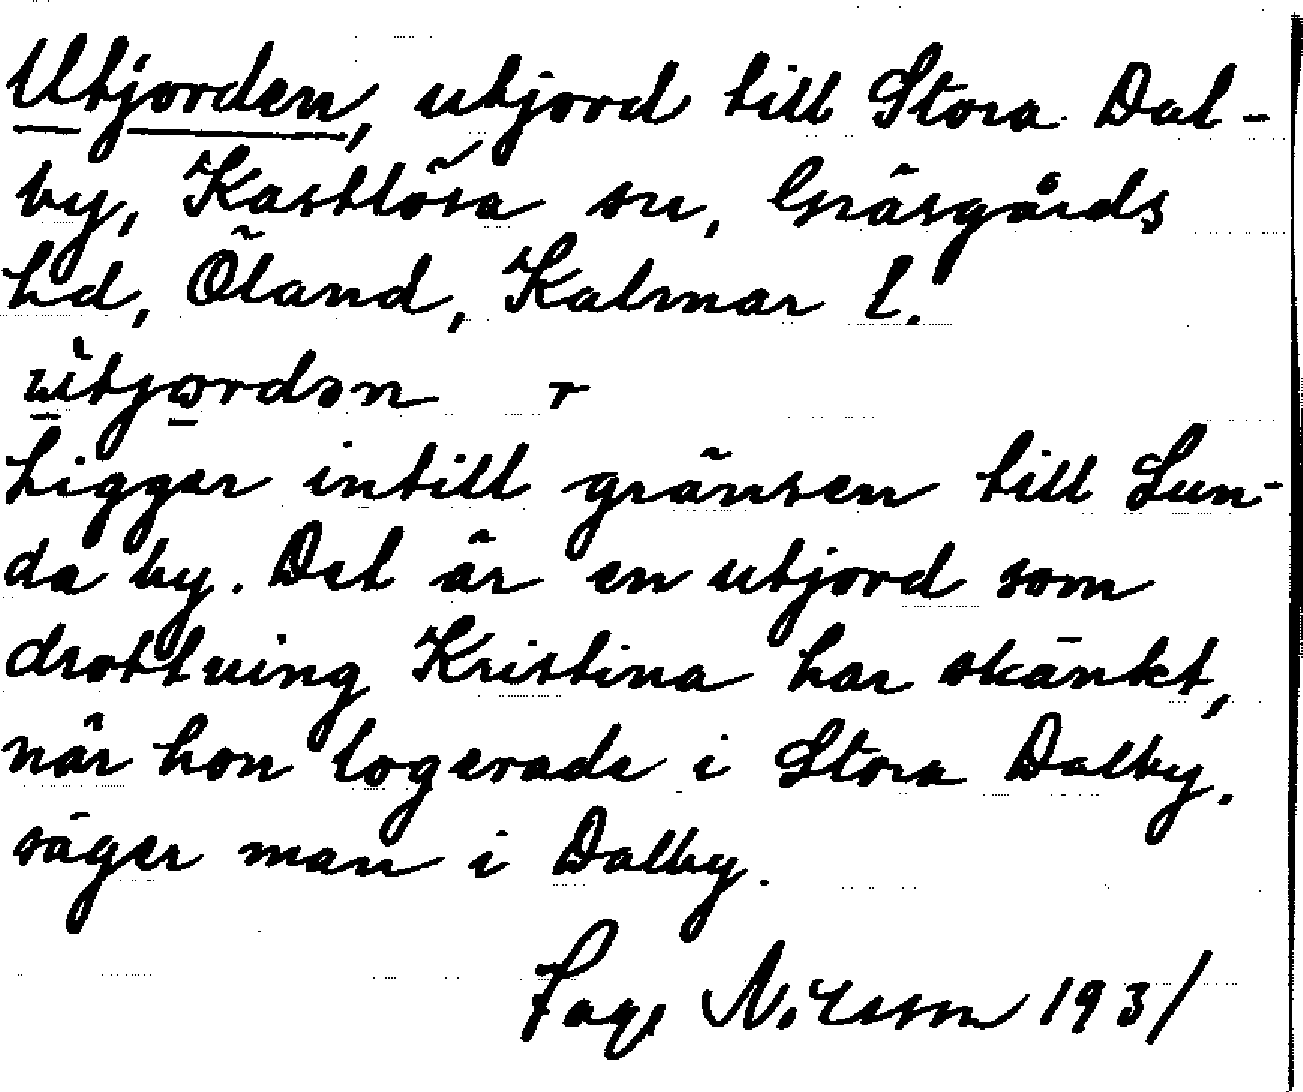 Utjorden, utjord till Stora Dal-
by, Kastlösa sn, Gräsgårds
hd, Öland, Kalmar l.
ùtjordən r
Ligger intill gränsen till Lun-
da by. Det är en utjord som
drottning Kristina har skänkt,
när hon logerade i Stora Dalby.
säger man i Dalby.
Sage Nilsson 1931